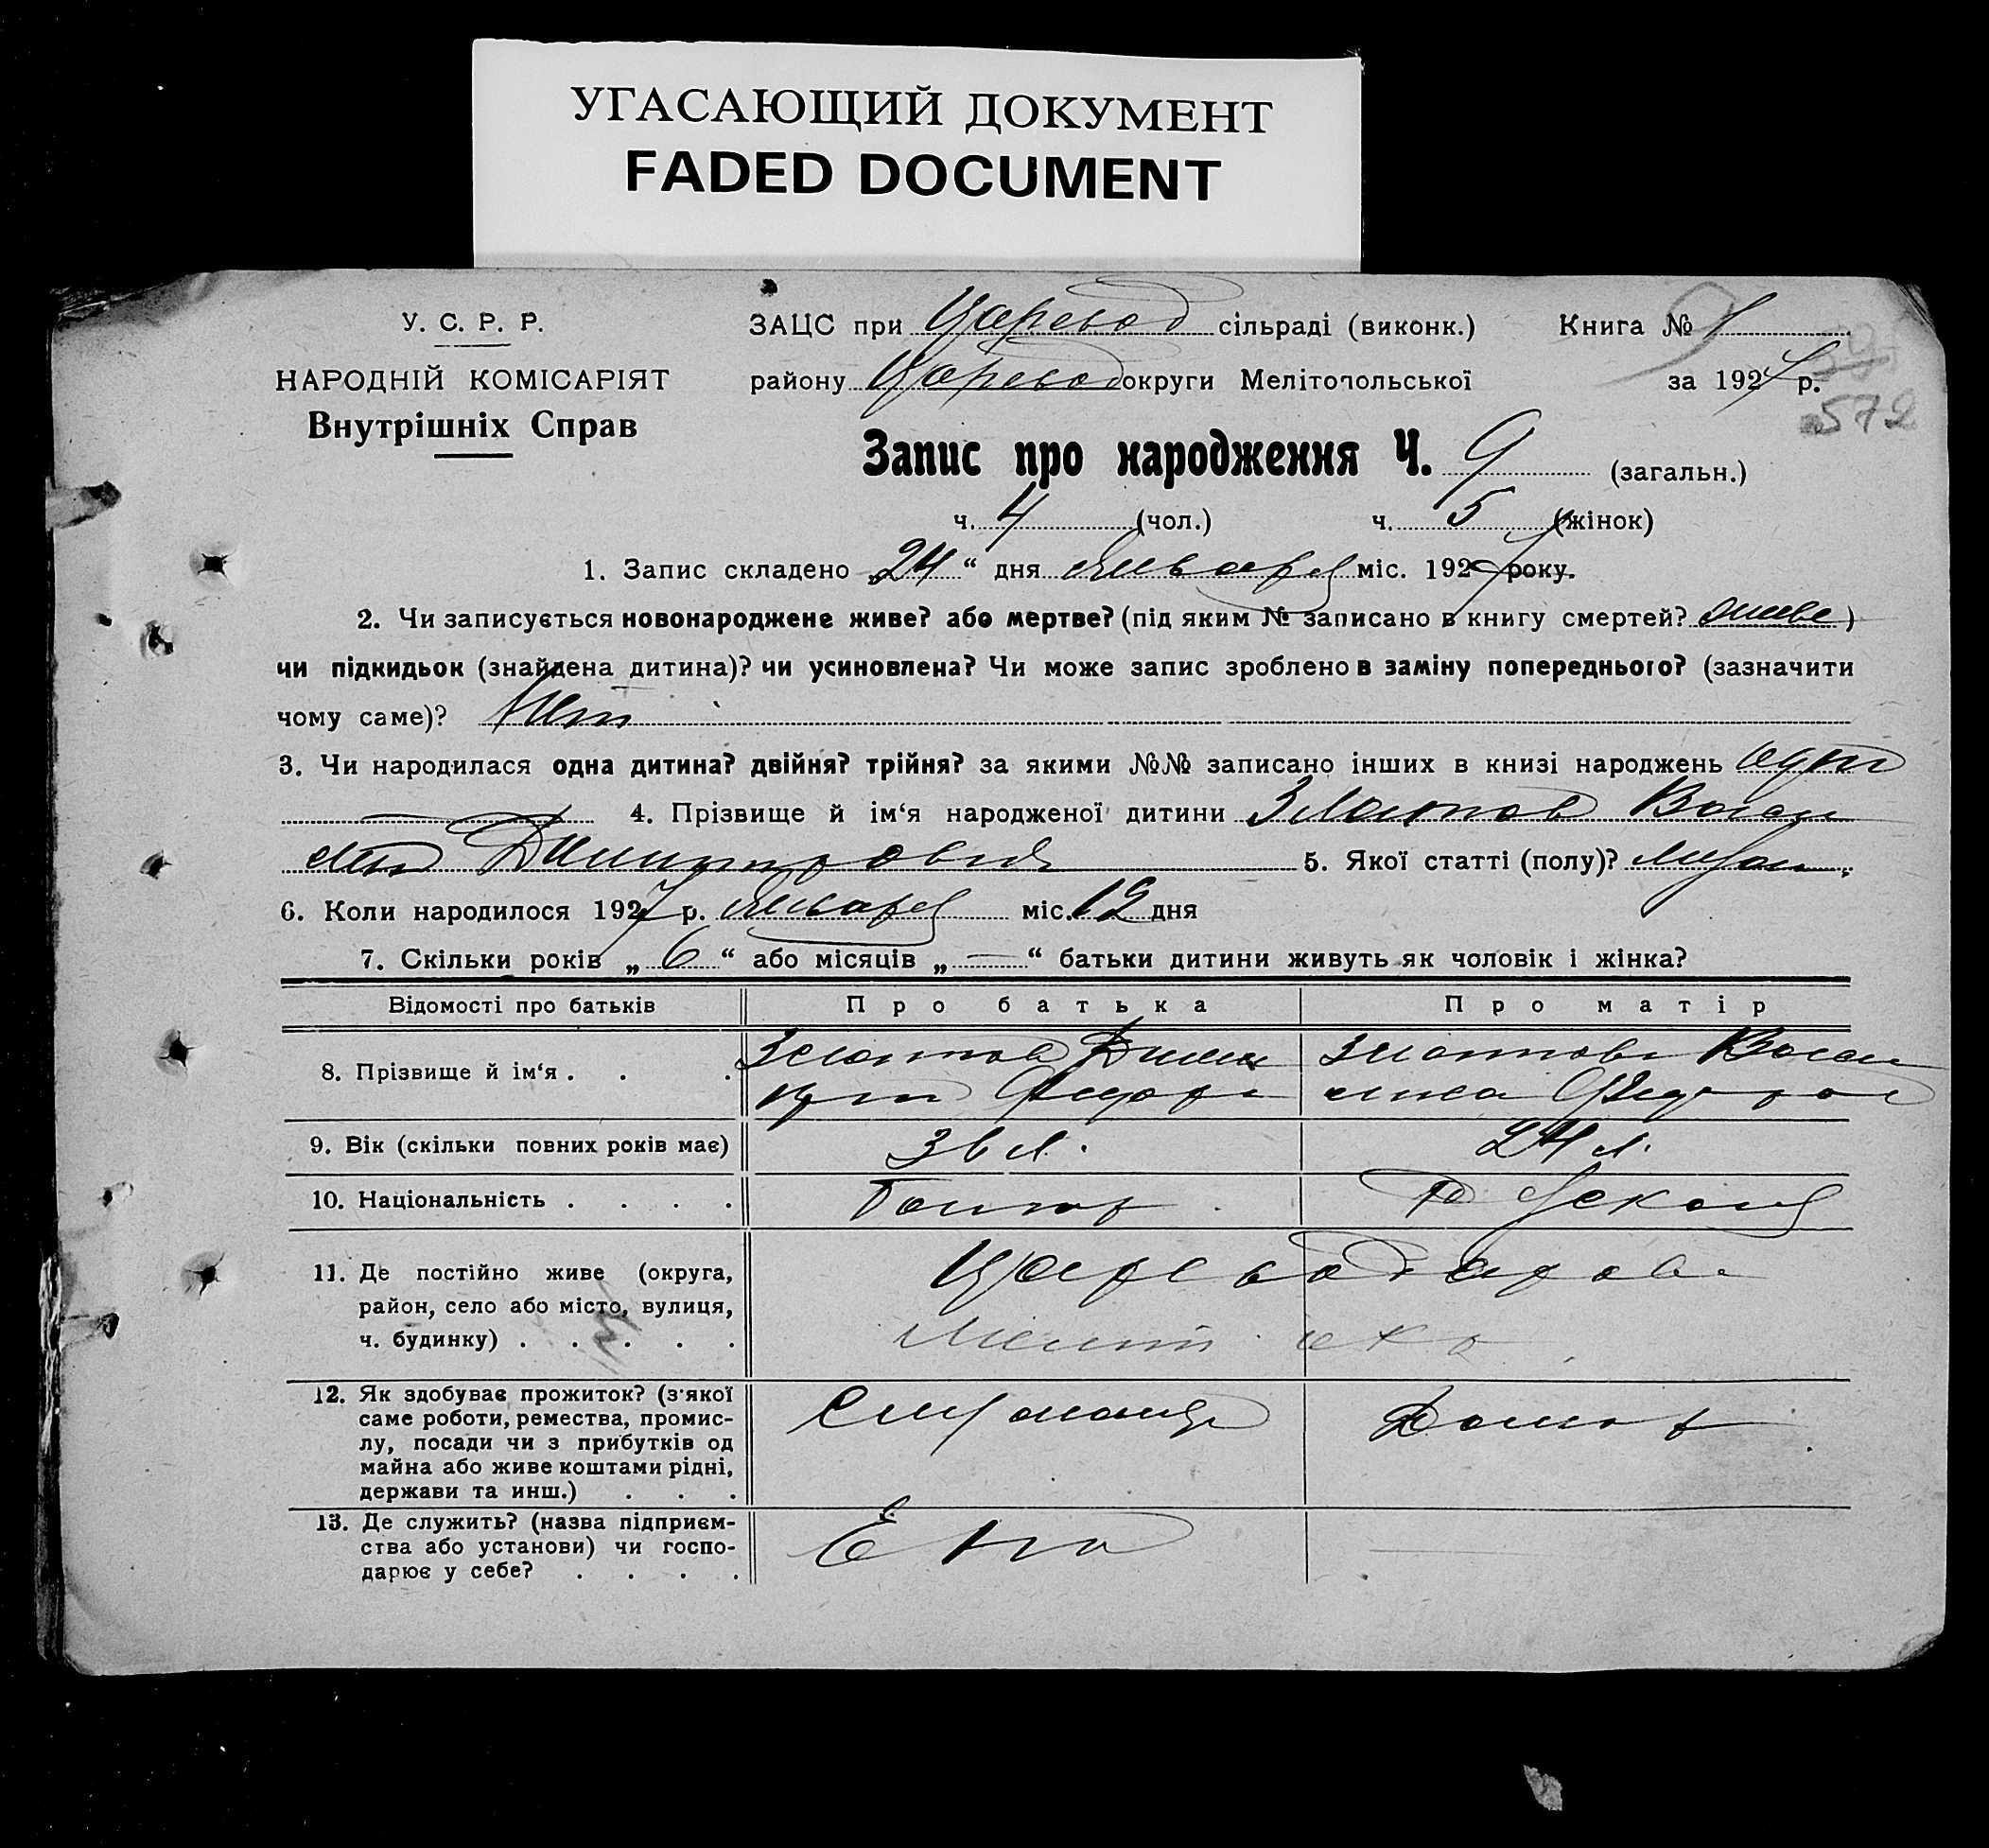 УГАСАЮЩИЙ ДОКУМЕНТ
FADED DOCUMENT
У. С. Р. Р.
НАРОДНІЙ КОМІСАРІЯТ
Внутрішніх Справ
ЗАЦС при Царевод сільраді (виконк.) Книга № 1
району Царевод округи Мелітопольської за 1927 р.
572
Запис про народження Ч. 9 (загальн.)
ч. 4 (чол.) ч. 5 (жінок)
1. Запис складено „24“ дня Января міс. 1927 року.
2. Чи записується новонароджене живе? або мертве? (під яким № записано в книгу смертей? живе)
чи підкидьок (знайдена дитина)? чи усиновлена? Чи може запис зроблено в заміну попереднього? (зазначити
чому саме)? Нет
3. Чи народилася одна дитина? двійня? трійня? за якими №№ записано інших в книзі народжень
— 4. Прізвище й ім‘я народженої дитини Златов Васи
лий Дмитрович 5. Якої статті (полу)?
6. Коли народилося 1927 р. Января міс. 12 дня
7. Скільки років „6“ або місяців „—“ батьки дитини живуть як чоловік і жінка?
Відомості про батьків Про батька Про матір
8. Прізвище й ім‘я . . . Златов Дми Златова Васи
трий Федоро лиса Федоров
9. Вік (скільки повних років має) 36 л. 24 л.
10. Національність . . . .
11. Де постійно живе (округа,
район, село або місто, вулиця,
ч. будинку) . . . . .
12. Як здобуває прожиток? (з‘якої
саме роботи, ремества, промис-
лу, посади чи з прибутків од
майна або живе коштами рідні,
держави та инш.) . . .
13. Де служить? (назва підприєм-
ства або установи) чи госпо-
дарює у себе? . . . .